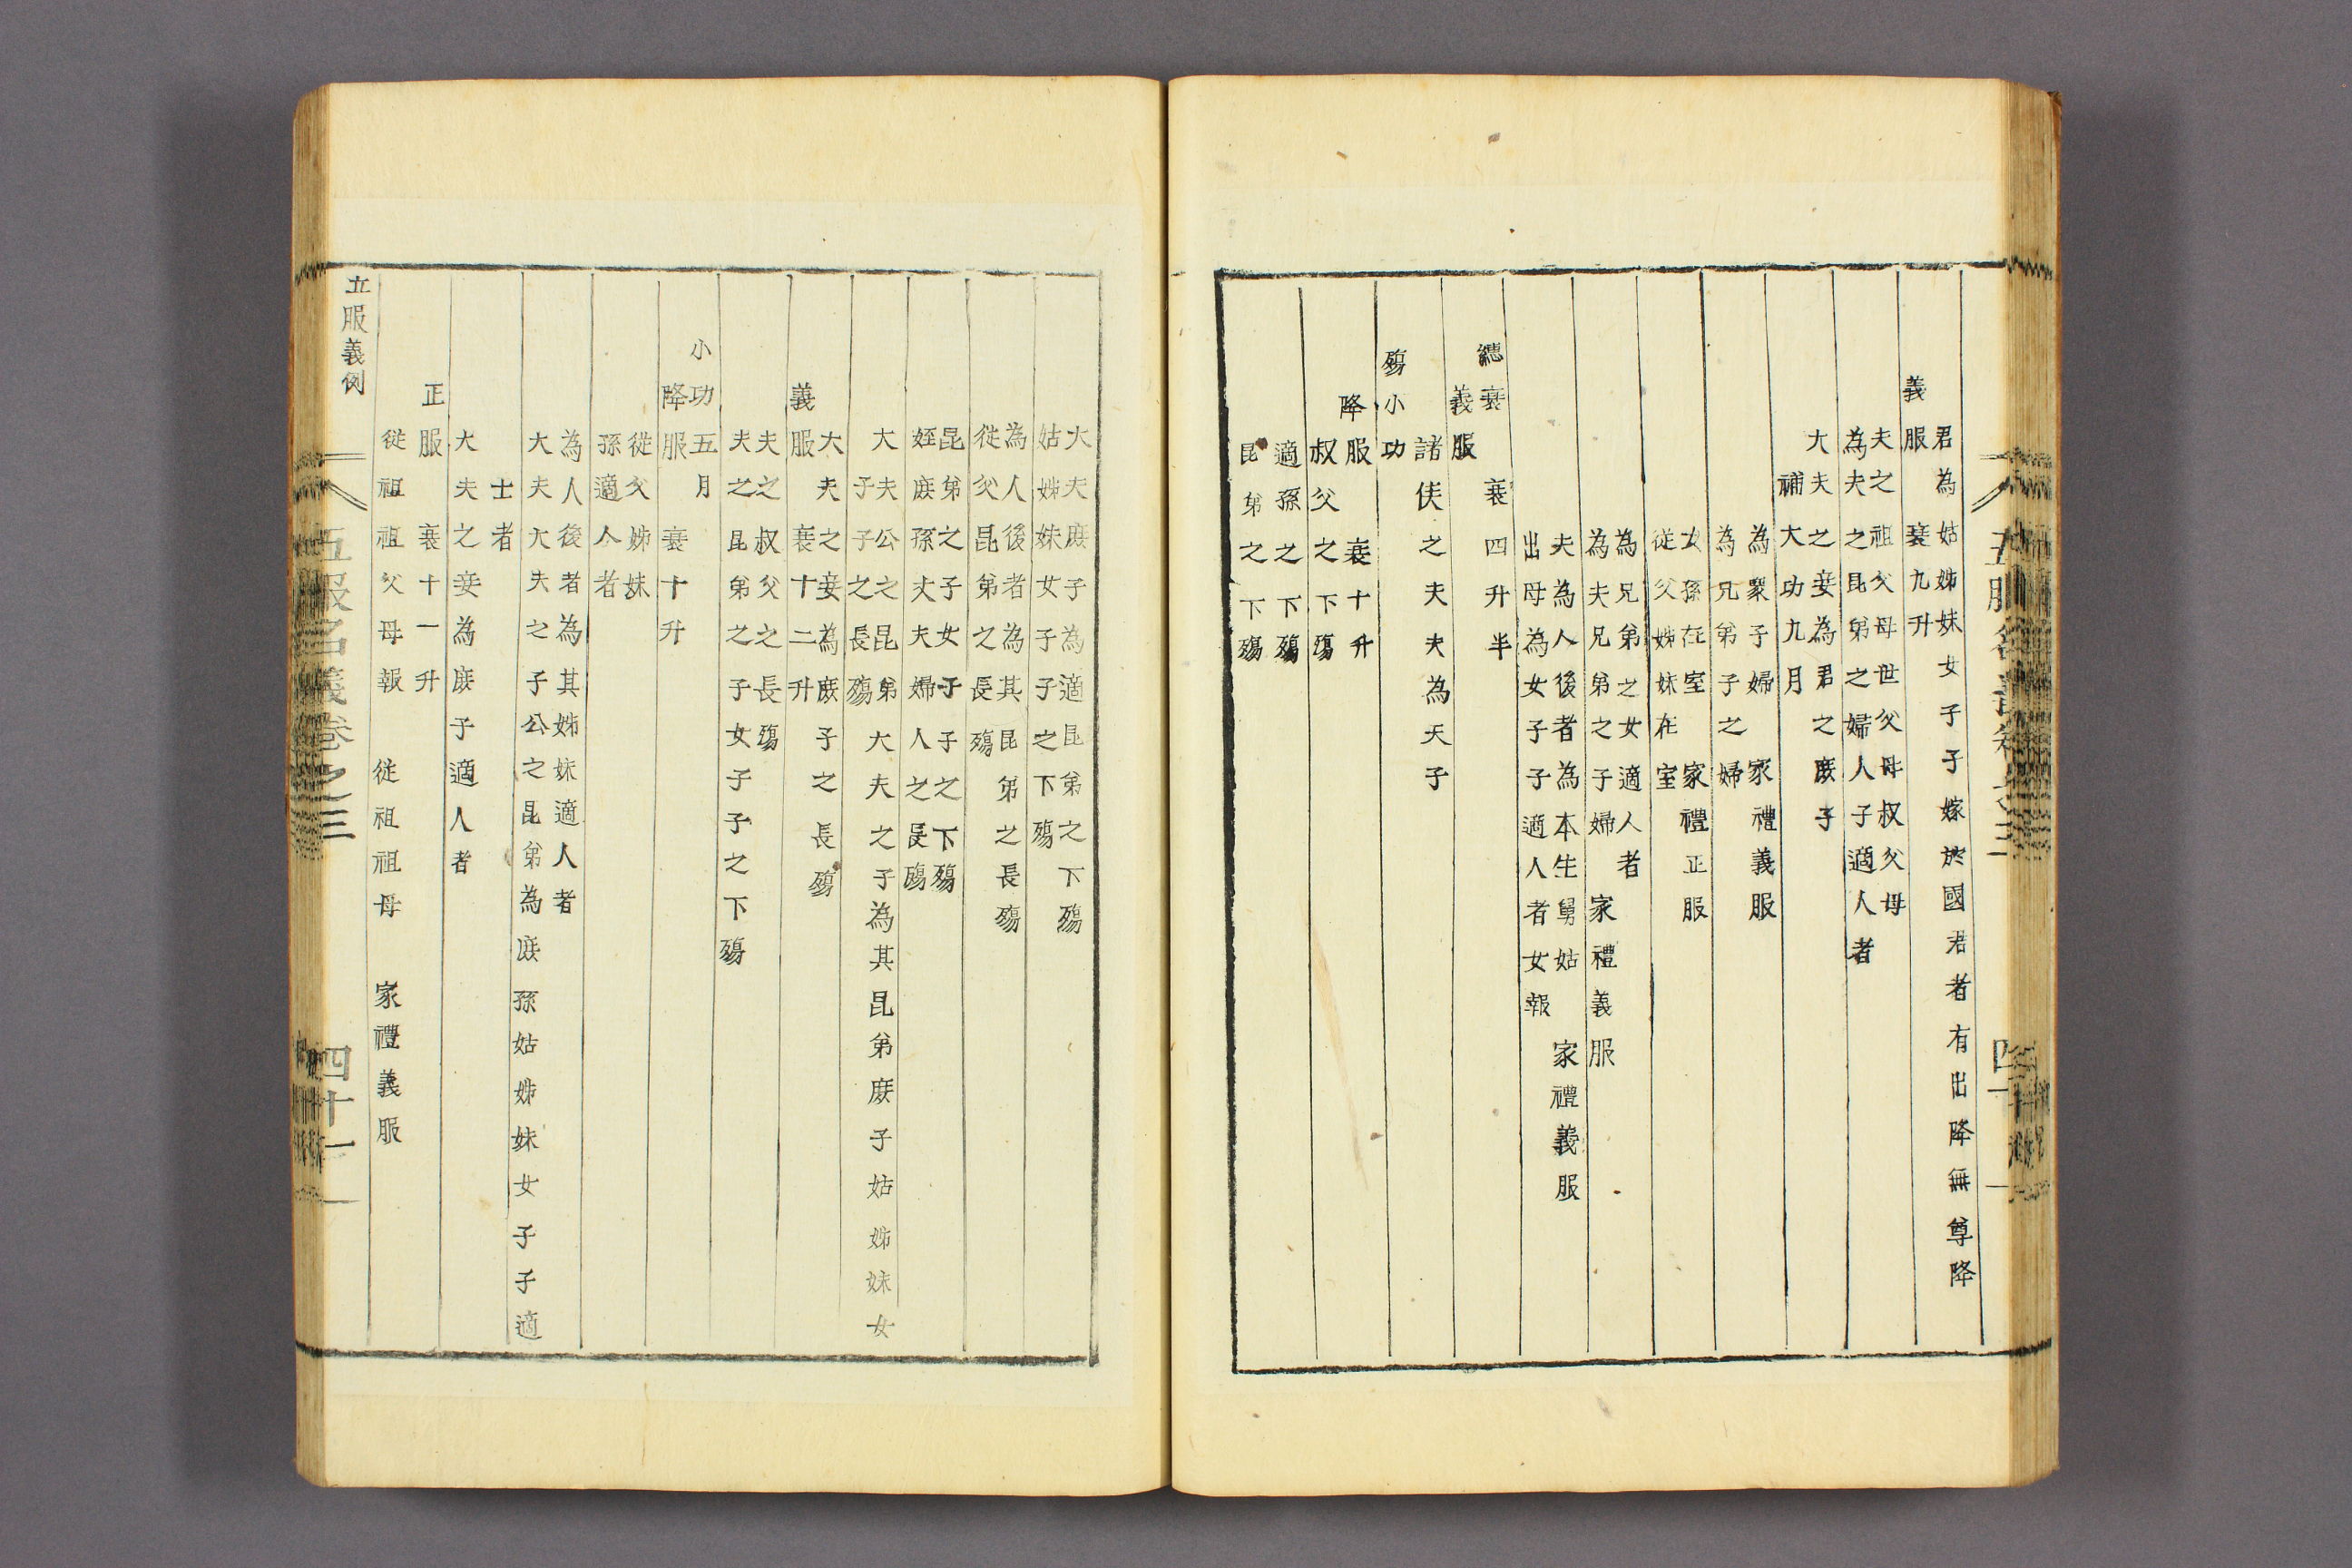 君為姑姊妹女子子嫁於國君者有出降無尊降
義服 衰九升
夫之祖父母世父母叔父母
為夫之昆弟之婦人子適人者
大夫之妾為君之庻子
補大功九月
為衆子婦 家禮義服
為兄弟子之婦
女孫在室 家禮正服
從父姊妹在室
為兄弟之女適人者
為夫兄弟之子婦 家禮義服
夫為人後者為本生舅姑 家禮義服
出母為女子子適人者女報
繐衰 衰四升半
義服
諸侯之夫夫為天子
殤小功
降服 衰十升
叔父之下殤
適孫之下殤
昆弟之下殤
大夫庻子為適昆弟之下殤
姑姊妹女子子之下殤
為人後者為其昆弟之長殤
從父昆弟之長殤
昆弟之子女子子之下殤
姪庻孫丈夫婦人之長殤
大夫公之昆弟大夫之子為其昆弟庻子姑姊妹女
子子之長殤
大夫之妾為庻子之長殤
義服 衰十二升
夫之叔父之長殤
夫之昆弟之子女子子之下殤
小功五月
降服 衰十升
從父姊妹
孫適人者
為人後者為其姊妹適人者
大夫大夫之子公之昆弟為庻孫姑姊妹女子子適
士者
大夫之妾為庻子適人者
正服 衰十一升
從祖祖父母報 從祖祖母 家禮義服
五服義例
五服名義卷之三
四十一